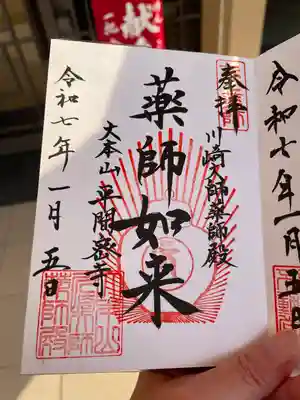 奉拝
川崎大師薬師殿
薬師如来
大本山 平間寺
令和七年一月五日
令和七年一月五
献